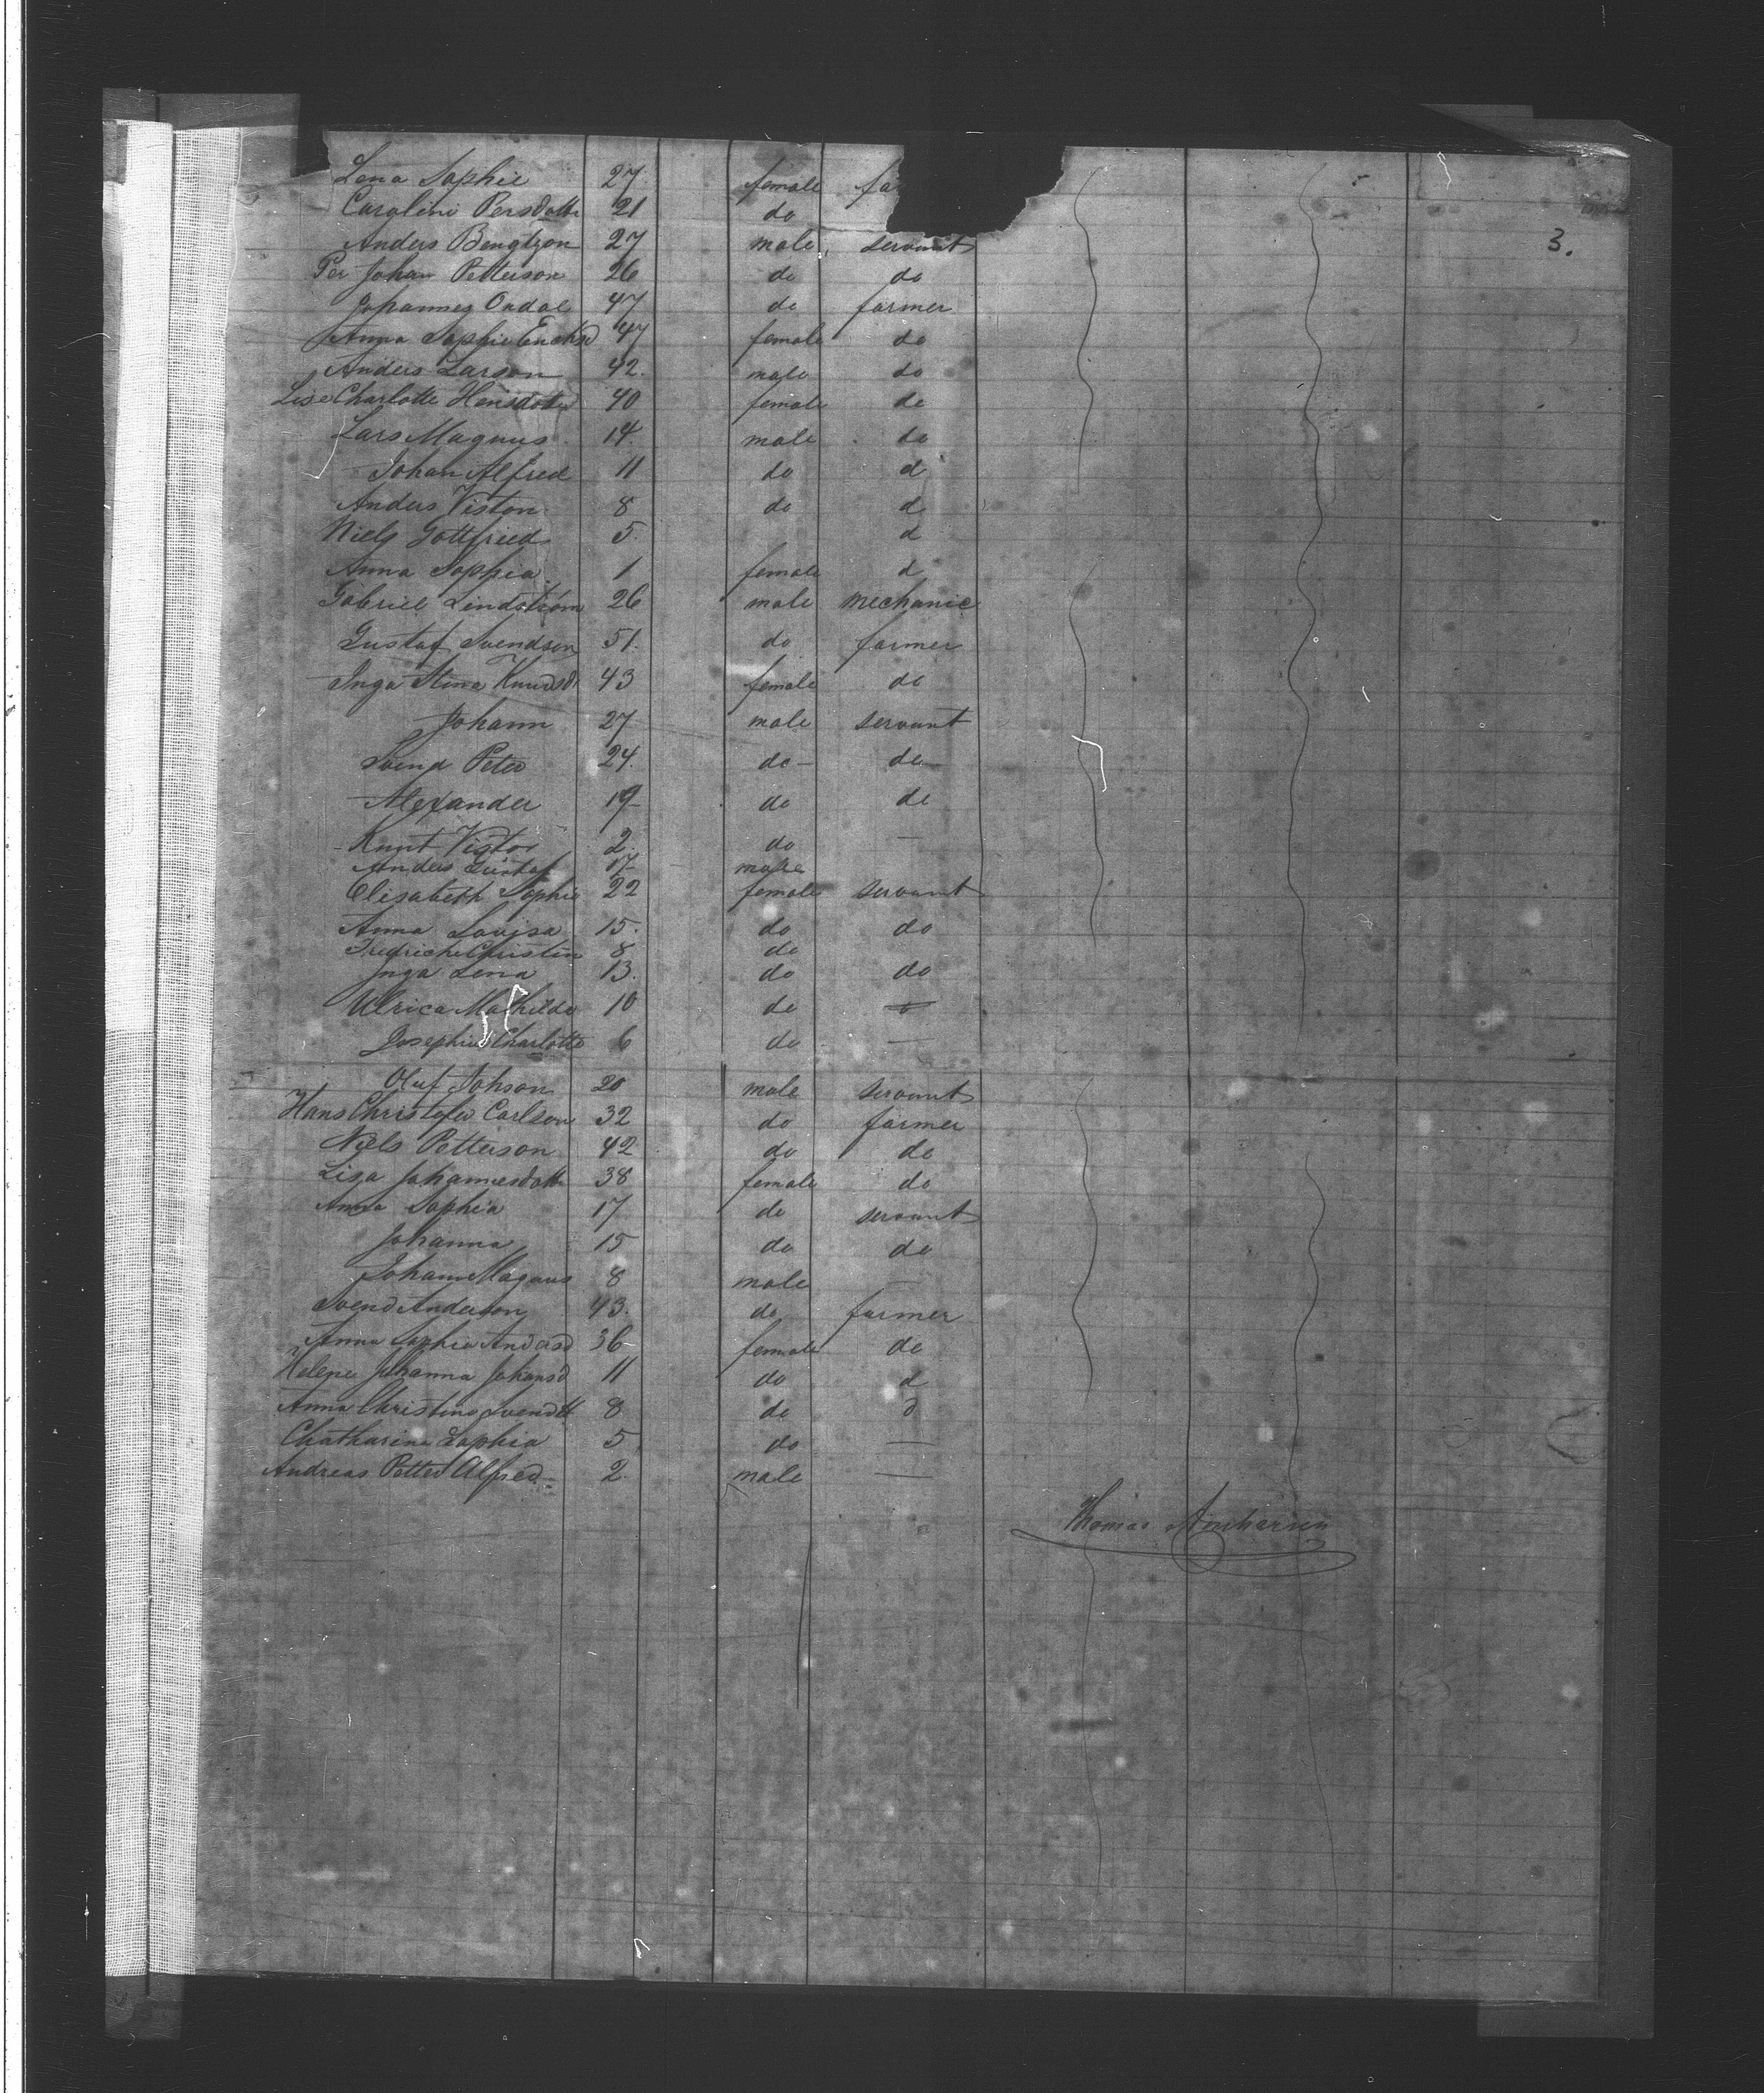 Lena Sophie 27. female fa
Caroline Persdottr 21 do
Anders Bengtzon 27 male servant
3.
Per Johan Petterson 26 do do
Johannes 47 do farmer
Anna Sophie Ericksd 47 female do
Anders Larson 42. male do
Lise Charlotte Hansdotter 40 female do
Lars Magnus 14. male do
Johan Alfred 11 do d
Anders Victon 8 do d
Niels Gottfried 5. d
Anna Sophia 1 female d
Gabriel Lindström 26 male mechanic
Gustaf Svendson 51. do farmer
Inga Stina Knudsd 43 female do
Johann 27 male servant
Svend Peter 24. do – do –
Alexander 19 do do
Knut Victor 2. do —
Anders Gustaf 17 male
Elisabeth Sophie 22 female servant
Anna Lovisa 15. do do
Fredriche Christin 8 do
Inga Lena 13. do do
Ulrica Mathilde 10 do
Josephine Charlotte 6 do —
Oluf Johson 20 male servant
Hans Christofer Carlson 32 do farmer
Niels Petterson 42 do do
Lisa Johannesdottr 38 female do
Anna Sophia 17 do servant
Johanna 15 do do
Johan Magnus 8 male —
Svend Anderson 43. do farmer
Anna Sophia Andersd 36 female do
Helene Johanna Johansd 11 do d
Anna Christine Svendtt 8 do d
Chatharina Sophia 5 do —
Andreas Petter Alfred 2. male —
Thomas